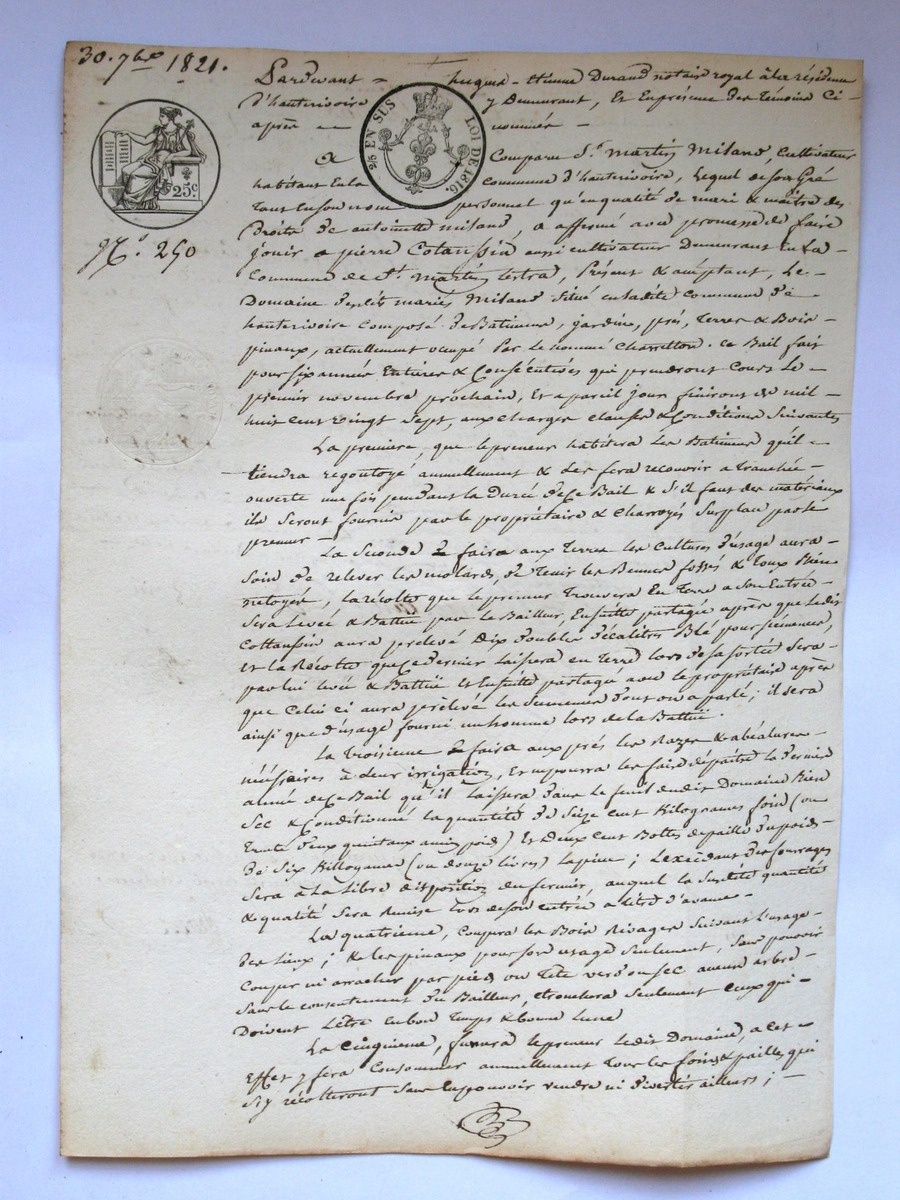 30. 7bre 1821.
25c.
2/5 EN SUS LOI DE 1816.
N°. 250
Pardevant = hugues-étienne Durand notaire royal à la résidence
d'hauterivoire y Demeurant, Et En présence des témoins Ci-
après — nommés —
A Comparu Sr. Martin Miland, Cultivateur
habitant En la Commune d'hauterivoire, Lequel de son Gré
tant En son nom personnel qu'en qualité de mari & maître des
Droits de antoinette miland, a affermé avec promesse de faire
jouir a pierre Cotaussin aussi cultivateur Demeurant En La-
Commune de St. Martin lestra, Présent & acceptant, Le-
Domaine desdits mariés Miland situé en ladite commune d'a
hauterivoire Composé de Batimens, jardins, prés, terres & Bois-
pinaux, actuellement occupé Par le nommé Charretton. Ce Bail fait
pour six années Entières & Consécutives qui prendront Cours Le-
premier novembre prochain, Et a pareil jour finiront de mil-
huit cent vingt sept, aux charges clauses & Conditions Suivantes
La premiere, que le preneur habitera Les Batimens qu'il-
tiendra regoutoyé annuellement & Les fera recouvrir a tranchée-
ouverte une fois pendant la Durée de Ce Bail & s'il faut des matériaux
ils Seront fournis par le propriétaire & Charroyés Sur place par le
preneur —
La Seconde De faire aux Terres les Cultures d'usage aura-
Soin de relever les molards, de tenir les Bennes fossés & Toux Bien
netoyés, la récolte que le preneur Trouvera En Terre a Son Entrée-
Sera Levée & Battue par le Bailleur, Ensuitte partagée après que Ledit
Cottaussin aura prélevé Dix Doubles Décalitres Blé pour Semences,
Et la Récolte que Ce Dernier Laissera en Terre lors de sa sortie Sera-
par lui Levée & Battüe Et Ensuitte partagée avec le propriétaire après
que Celui Ci aura prélevé les Semences Dont on a parlé; il sera
ainsi que d'usage fourni un homme lors de la Battüe.
La troisieme De faire aux prés les Razes & abéalures-
nécéssaires à leur irrigation, Et ne pourra les faire dépaître la Derniere
année de Ce Bail qu'il Laissera Dans Le fenil dudit Domaine Bien
Sec & Conditionné la quantité De Seize cent Kilogrames foin (ou
Trente Deux quintaux ancien poid) Et Deux cent Bottes de paille du poids-
De Six Killogrames (ou douze livres) la piece; Lexcédant des fourrages
Sera à La Libre disposition du fermier, auquel la Susdite quantité
& qualité Sera Remise lors de son entrée a titre d'avance-
La quatrieme, Coupera les Bois Rivages Suivant L'usage-
Des Lieux; & les pinaux pour son usage Seulement, Sans pouvoir
Couper ni arracher par pied ou Tete verd ou sec aucun arbre-
Sans le consentement du Bailleur, étronchera Seulement Ceux qui-
Doivent L'être En bon Temps & bonne Lune
La Cinquieme, fumera le preneur Ledit Domaine, a Cet-
Effet y fera Consommer annuellement Tous les foins & pailles qui
S'y récolteront Sans En pouvoir vendre ni divertir ailleurs; —